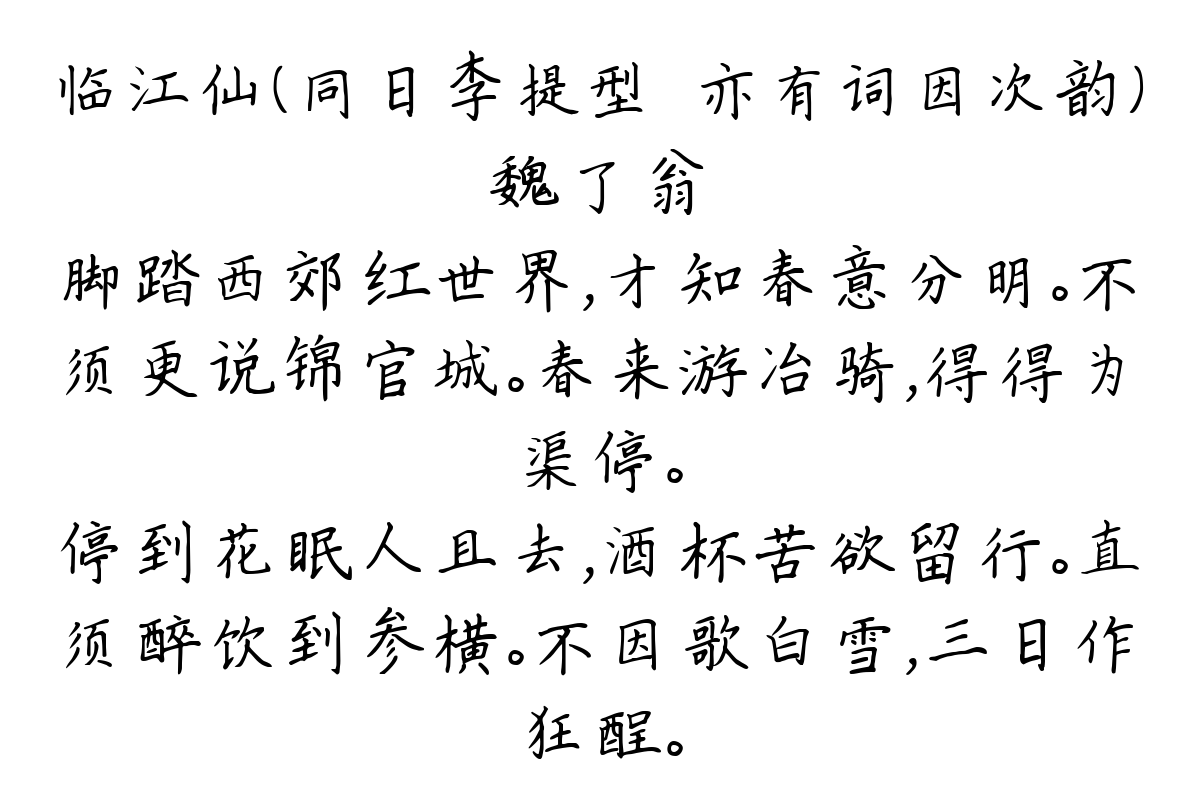 临江仙(同日李提型 亦有词因次韵)
魏了翁
脚踏西郊红世界,才知春意分明。不
须更说锦官城。春来游冶骑,得得为
渠停。
停到花眠人且去,酒杯苦欲留行。直
须醉饮到参横。不因歌白雪,三日作
狂酲。